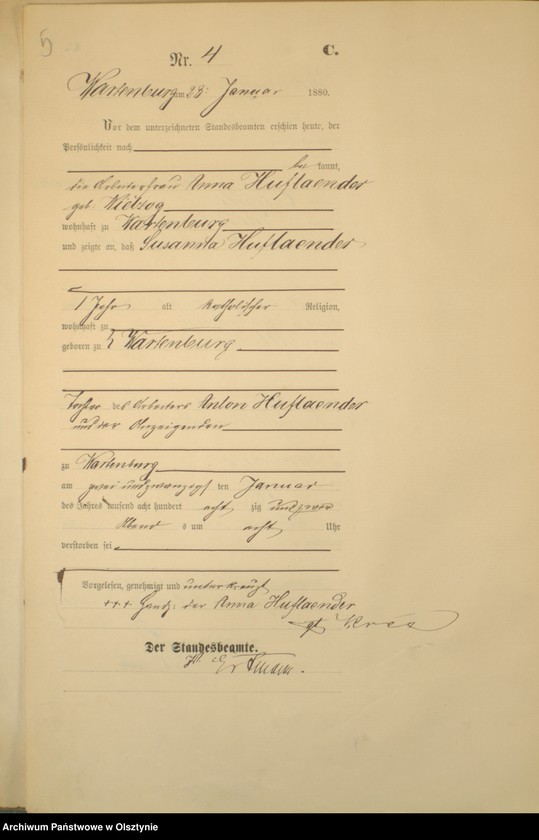 5
Nr. 4
C.
Wartenburg am 23. Januar 1880.
Vor dem unterzeichneten Standesbeamten erschien heute, der
Persönlichkeit nach
be kannt,
die Arbeiterfrau Anna Huflaender
geb.
wohnhaft zu Wartenburg
und zeigte an, daß Susanna Huflaender
1 Jahr alt katholischer Religion,
wohnhaft zu
geboren zu Wartenburg
Tochter des Arbeiters Anton Huflaender
und der Anzeigenden
zu Wartenburg
am zwei und zwanzigsten Januar
des Jahres tausend acht hundert acht zig und zwar
Abend s um acht Uhr
verstorben sei
Vorgelesen, genehmigt und unterkreuzt
+++ Handz. der Anna Huflaender
Der Standesbeamte.
Archiwum Państwowe w Olsztynie